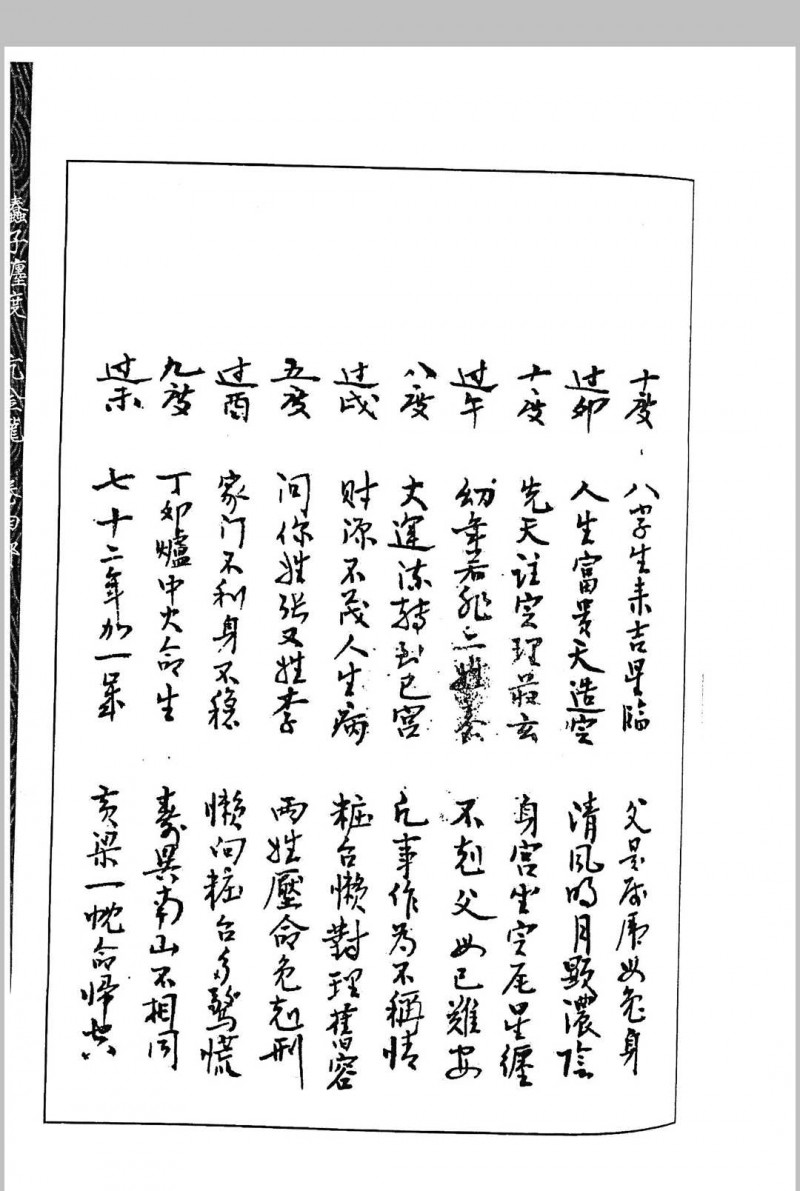 十度 八字生来吉星临 父是属虎女兔身
过卯 人生富贵天造定 清风明月显浓阴
十度 先天注定理茲玄 身宫坐定尾星缠
过午 幼年若非二姓养 不克父女已难安
八度 大運流转到巳宫 凡事作为不稱情
过戌 财源不茂人生病 粧台懒對理舊容
五度 问你姓张又姓李 两姓壓命免克刑
过酉 家门不利身不稳 懒向粧台多驚慌
九度 丁卯爐中火命生 寿與南山不相同
过未 七十二年加一歲 黄梁一枕命帰
蠢子纏度 亢金龍